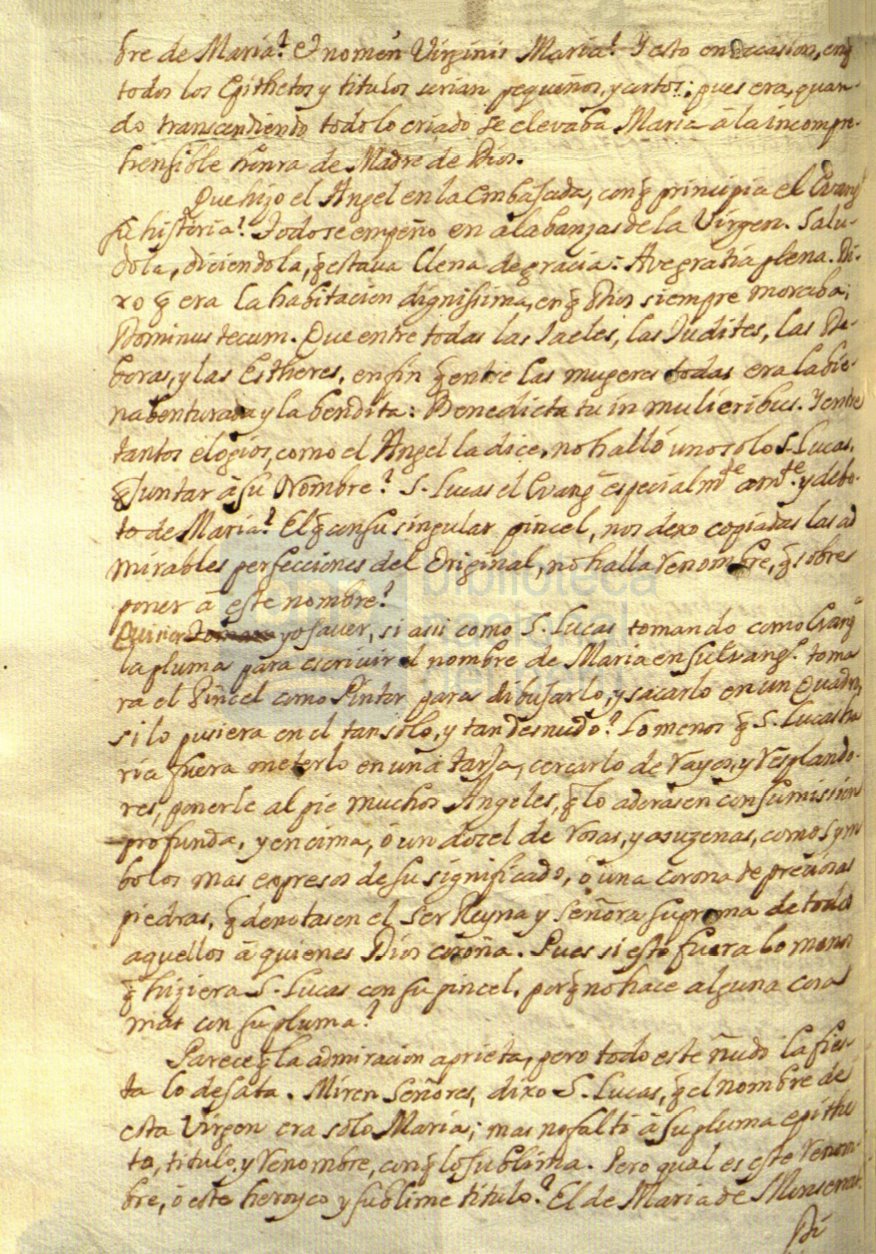 bre de Maria? Et nomen Virginis Maria? Y esto en ocasion, en q̃
todos los Epithetos y titulos serian pequeños, y cortos; pues era, quan-
do transcendiendo todo lo criado se elevaba Maria â la incompre-
hensible honra de Madre de Dios.
Que hizo el Angel en la Embaxada, con q̃ principia el Evang
su historia? Todo se empeño en alabanzas de la Virgen. Salu-
dola, diciendola, q̃ estava llena de gracia: Ave gratia plena. Di-
xo q̃ era la habitacion dignissima, en q̃ Dios siempre moraba;
Dominus tecum. Que entre todas las Iaeles, las Iudites, las De-
boras, y las Estheres, en fin q̃ entre las mugeres todas era la bie-
nabenturada y la bendita: Benedicta tu in mulieribus. Y entre
tantos elogios, como el Angel la dice, no halló uno solo S. Lucas,
q̃ Juntar â su Nombre? S. Lucas el Evang especialmte amte y debo-
to de Maria? El q̃ con su singular pincel, nos dexo copiadas las ad
mirables perfecciones del Original, no halla renombre, q̃ sobres
poner â este nombre?
Quisiera yo saver, si asi como S. Lucas tomando como Evang
la pluma para escrivir el nombre de Maria en su Evang. toma
ra el Pincel como Pintor para dibujarlo, y sacarlo en un Quadro,
si lo pusiera en el tan solo, y tan desnudo? Lo menos q̃ S. Lucas ha
ria fuera meterlo en una tarja, cercarlo de rayos, y resplando-
res, ponerle al pie muchos Angeles, q̃ lo adorasen con sumission
profunda, y encima, ó un dozel de rosas, y asuzenas, como sym
bolos mas expresos de su significado, ó una corona de preciosas
piedras, q̃ denotasen el ser Reyna y Señora suprema de todos
aquellos â quienes Dios corona. Pues si esto fuera lo menos
q̃ hiziera S. Lucas con su pincel, porq̃ no hace alguna cosa
mas con su pluma?
Parece q̃ la admiracion aprieta, pero todo este ñudo la fies-
ta lo desata. Miren Señores, dixo S. Lucas, q̃ el nombre de
esta Virgen era solo Maria; mas no faltó â su pluma epithe
to, titulo, y renombre, con q̃ lo sublima. Pero qual es este renom-
bre, ó este heroyco y sublime titulo? El de Maria de Monserra